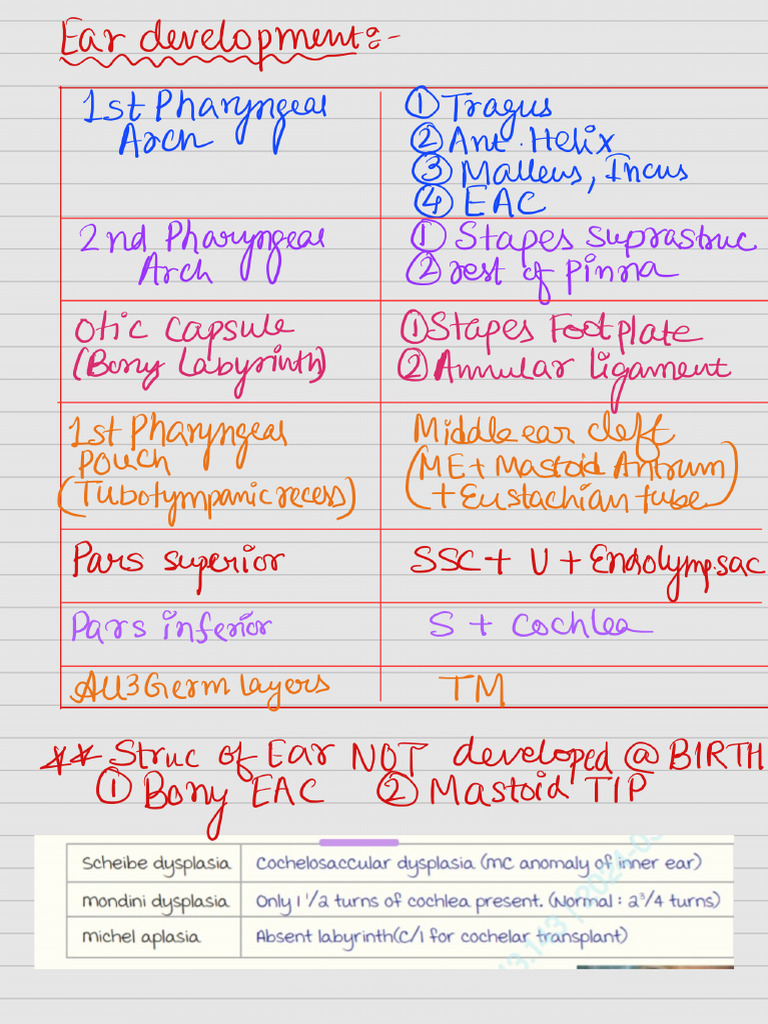 Ear development:-
1st Pharyngeal
Arch
① Tragus
② Ant. Helix
③ Malleus, Incus
④ EAC
2nd Pharyngeal
Arch
① Stapes suprastruc
② rest of pinna
Otic capsule
(Bony Labyrinth)
① Stapes Footplate
② Annular ligament
1st Pharyngeal
Pouch
(Tubotympanic recess)
Middle ear cleft
(ME + Mastoid Antrum
+ Eustachian tube)
Pars superior
SSC + U + Endolymp. sac
Pars inferior
S + Cochlea
All 3 Germ layers
TM
** Struc of Ear NOT developed @ BIRTH
① Bony EAC ② Mastoid TIP
Scheibe dysplasia
Cochelosaccular dysplasia (mc anomaly of inner ear)
mondini dysplasia
Only 1 1/2 turns of cochlea present. (Normal : 2 3/4 turns)
michel aplasia
Absent labyrinth(C/I for cochelar transplant)